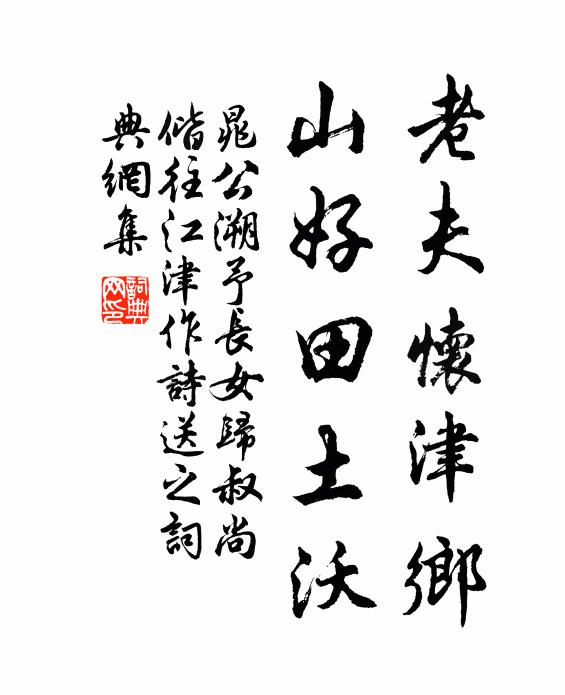 老夫懷津鄉
山好田土沃
晁公溯予長女歸叔尚
偕往江津作詩送之詞
典網集
詞典
网印